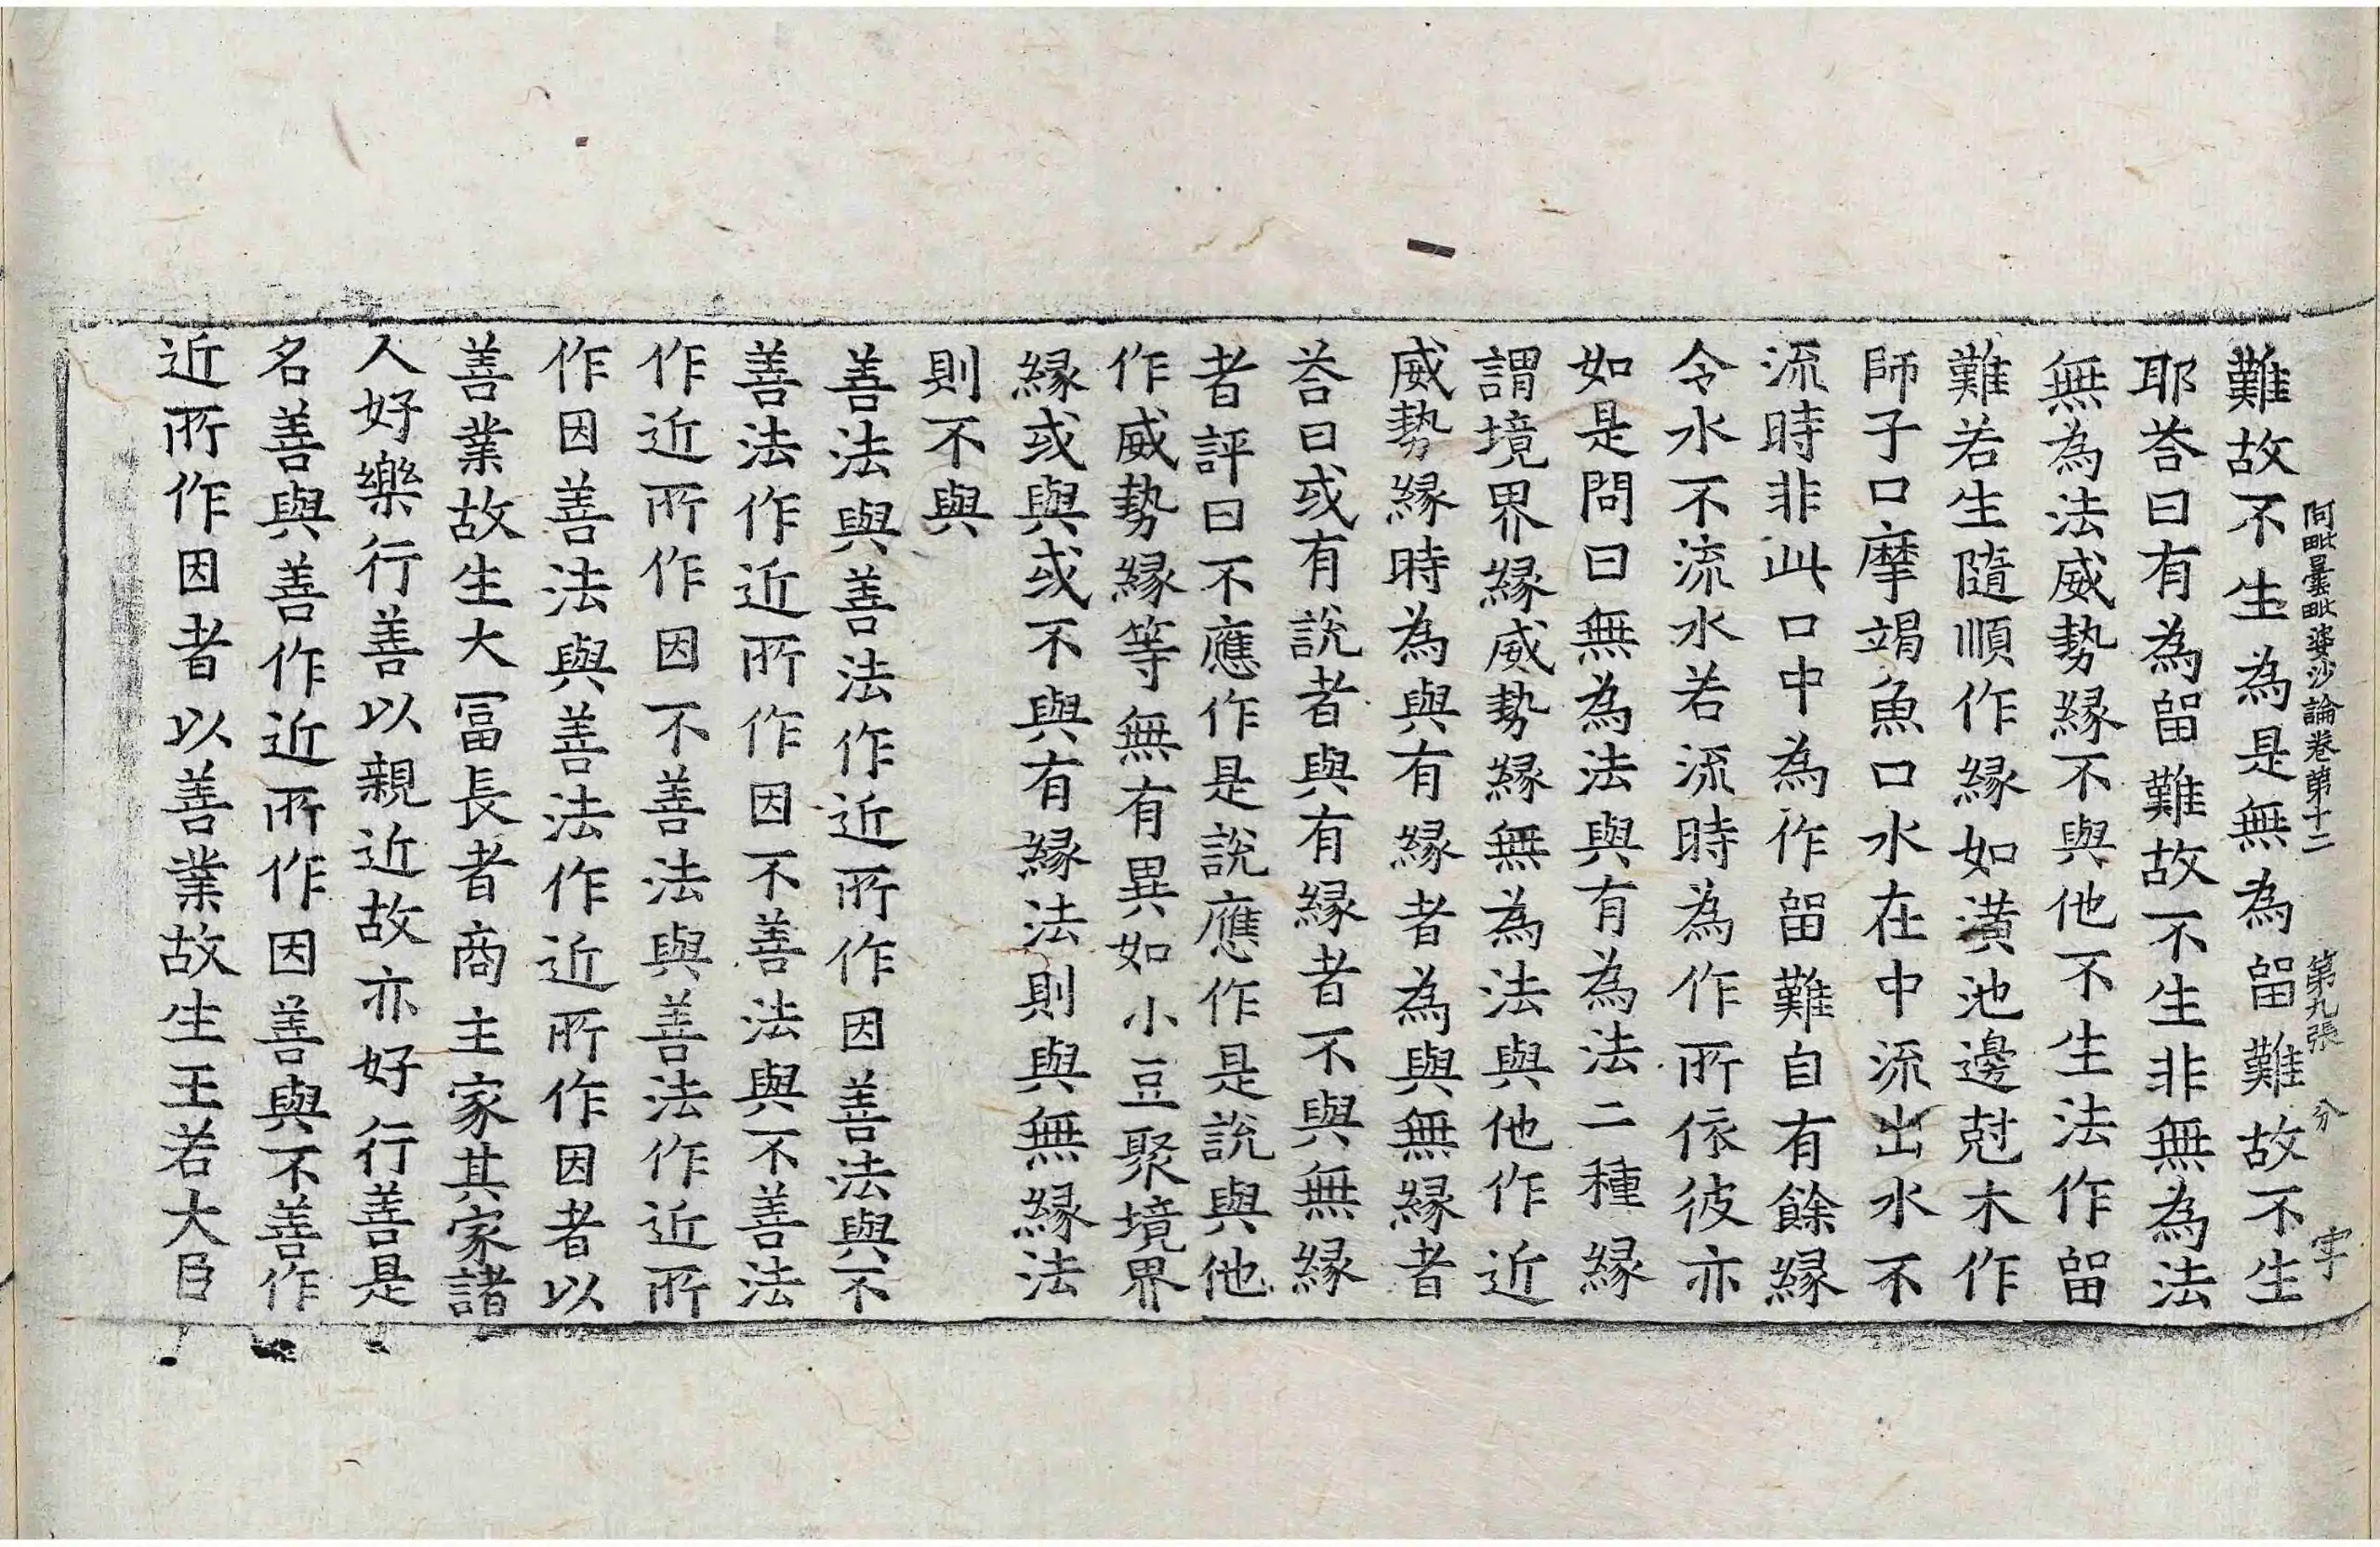 阿毗曇毗婆沙論卷第十二 第九張 分 字
難故不生為是無為留難故不生
耶荅曰有為留難故不生非無為法
無為法威勢緣不與他不生法作留
難若生隨順作緣如潢池邊尅木作
師子口摩竭魚口水在中流出水不
流時非此口中為作留難自有餘緣
令水不流水若流時為作所依彼亦
如是問曰無為法與有為法二種緣
謂境界緣威勢緣無為法與他作近
威勢緣時為與有緣者為與無緣者
荅曰或有說者與有緣者不與無緣
者評曰不應作是說應作是說與他
作威勢緣等無有異如小豆聚境界
緣或與或不與有緣法則與無緣法
則不與
善法與善法作近所作因善法與不
善法作近所作因不善法與不善法
作近所作因不善法與善法作近所
作因善法與善法作近所作因者以
善業故生大冨長者商主家其家諸
人好樂行善以親近故亦好行善是
名善與善作近所作因善與不善作
近所作因者以善業故生王若大臣